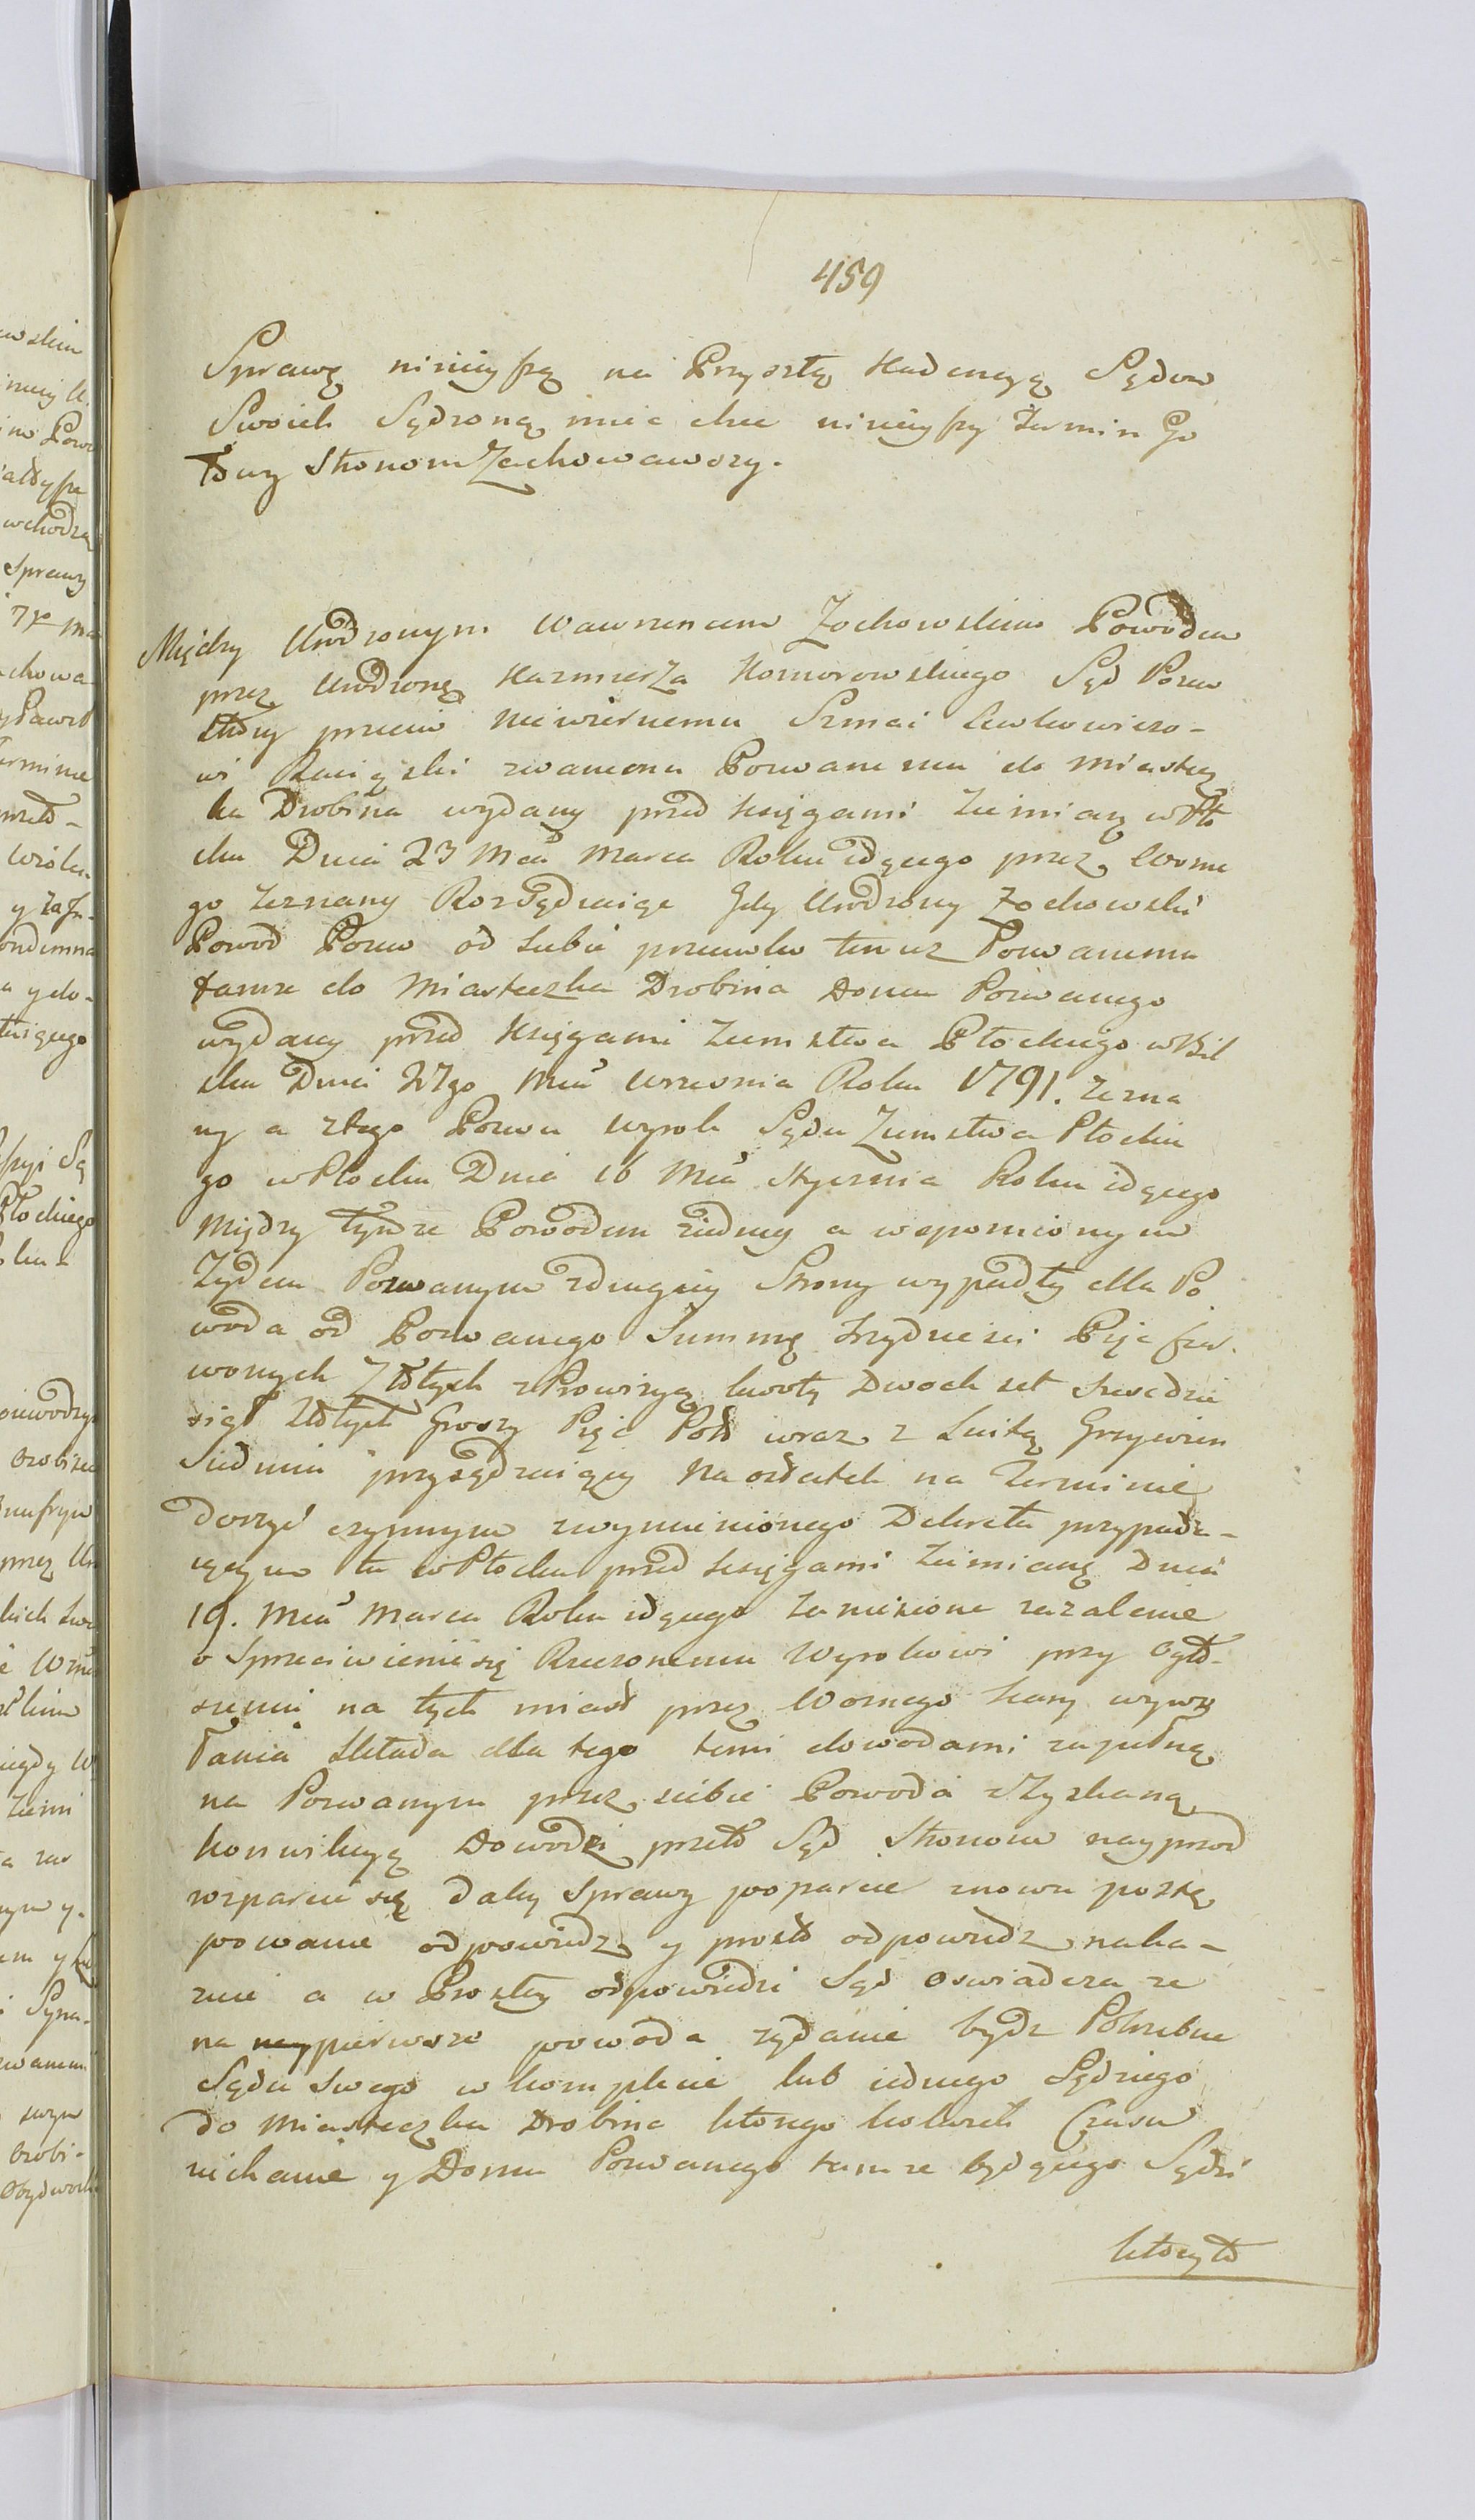 459
Sprawę ninieyszą na Przyszłą Kadencyą Sądow
Swoich Sądzoną mieć chce ninieyszy Termin Go
towy Stronom Zachowawszy.
Między Urodzonym Wawrzencem Zochowskim Powodem
przez Urodzonę Kazmierza Komorowskiego Sąd Pozew
Ktory przeciw Niewiernemu Szmai Lewkowiczo-
wi zwanemu Pozwanemu do Miastecz
ka Drobina wydany przed Księgami Ziemianę w Pło
cku Dnia 23 Mca Marca Roku idącego przez Wozne
go Zeznany Rozsądzaiąc Gdy Urodzony Zochowski
Powod Pozew od Siebie przeciwko temuz Pozwanemu
tamze do Miasteczka Drobina Domu Pozwanego
wydany przed Księgami Ziemstwa Płockiego w Biel
sku Dnia 27go Mca Wrzesnia Roku 1791. Zezna
ny a ztego Pozwu wyrok Sądu Ziemstwa Płockie
go w Płocku Dnia 16 Mca Stycznia Roku idącego
Między tymze Powodem ziedney a wspomionym
Zydem Pozwanym zdrugiey Strony wypadły dla Po
woda od Pozwanego Summę trzydziesci Pięć czer.
wonych Złotych z Prowizyą kwotę Dwoch set szescdzie
siąt Złotych Groszy Pięć Poł wraz z Luitą Grzywien
Siedmiu przysądzaiący Na ostatek na Terminie
dosyć czynnym zwymienionego Dekretu przypada-
iącym tu w Płocku przed księgami Ziemianę Dnia
19. Mca Marca Roku idącego zaniesione zazalenie
o Sprzeciwienie się Rzeczonemu Wyrokowi przy Ogło-
szeniu na tych miast przez Woznego kary wywo
łania składa dla tego temi dowodami zupełną
na Pozwanym przez siebie Powoda Zyskaną
konwikcyą Dowodzi przeto Sąd Stronom nayprzod
rozparcie się daley Sprawy poparcie znowu postę
powanie odpowiedz y prosto odpowiedz naka-
zuie a w Prostey odpowiedzi Sąd Oswiadcza ze
na naypierwsze powoda ządanie bydz Potrzebne
Sądu swego w komplecie lub iednego Sędziego
do Miasteczka Drobina ktorego kolwiek Czasu
ziechanie y Domu Pozwanego tamze będącego Sędzi